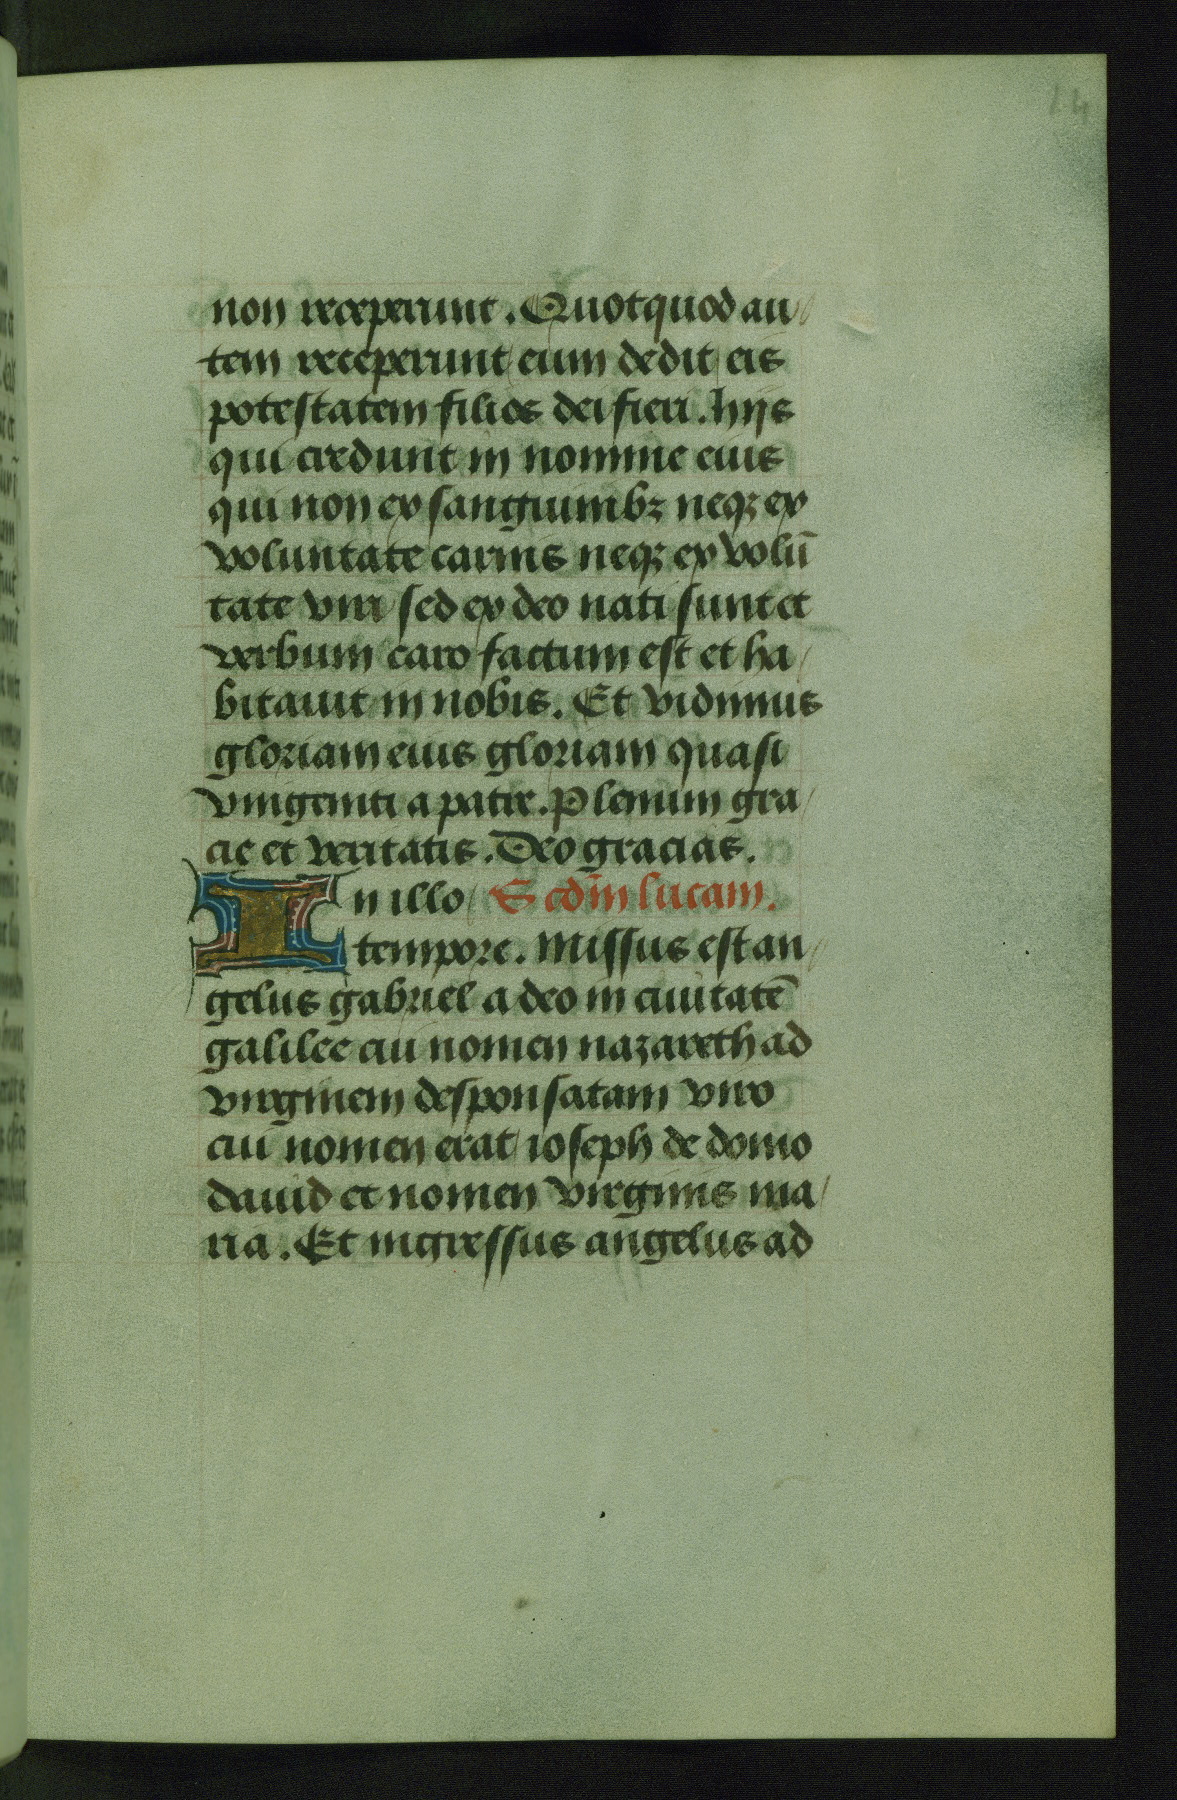 14
non receperunt. Quotquod au
tem receperunt eum dedit eis
potestatem filios dei fieri. hijs
qui credunt in nomine eius
qui non ex sanguinibꝫ neqꝫ ex
voluntate carnis neqꝫ ex volū
tate viri sed ex deo nati sunt et
verbum caro factum est et ha
bitauit in nobis. Et vidimus
gloriam eius gloriam quasi
vnigeniti a patre. Plenum gra
cie et veritatis. Deo gracias.
In illo Scdm̄ lucam.
tempore. Missus est an
gelus gabriel a deo in ciuitatē
galilee cui nomen nazareth ad
virginem desponsatam viro
cui nomen erat ioseph de domo
dauid et nomen virginis ma
ria. Et ingressus angelus ad